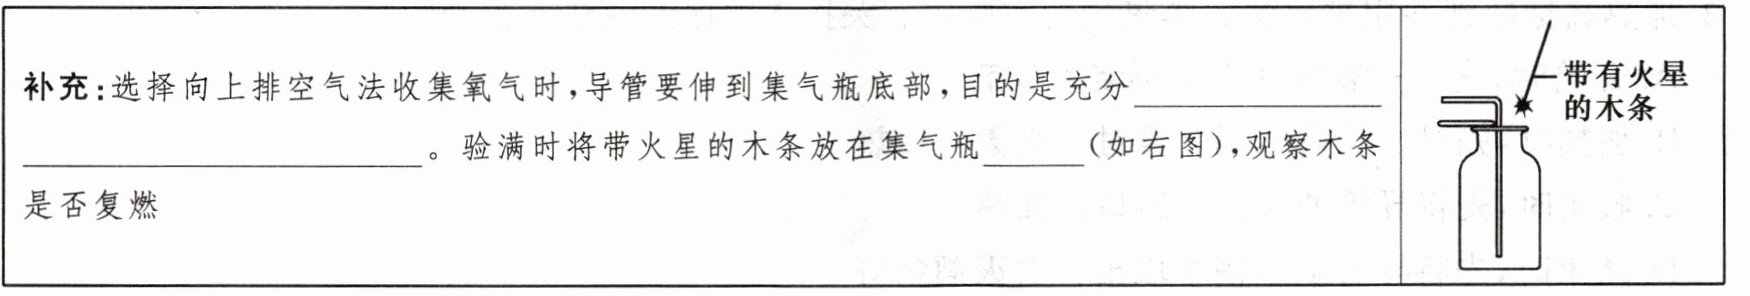 补充:选择向上排空气法收集氧气时,导管要伸到集气瓶底部,目的是充分____________
____________________。验满时将带火星的木条放在集气瓶_____(如右图),观察木条
是否复燃
带有火星
的木条